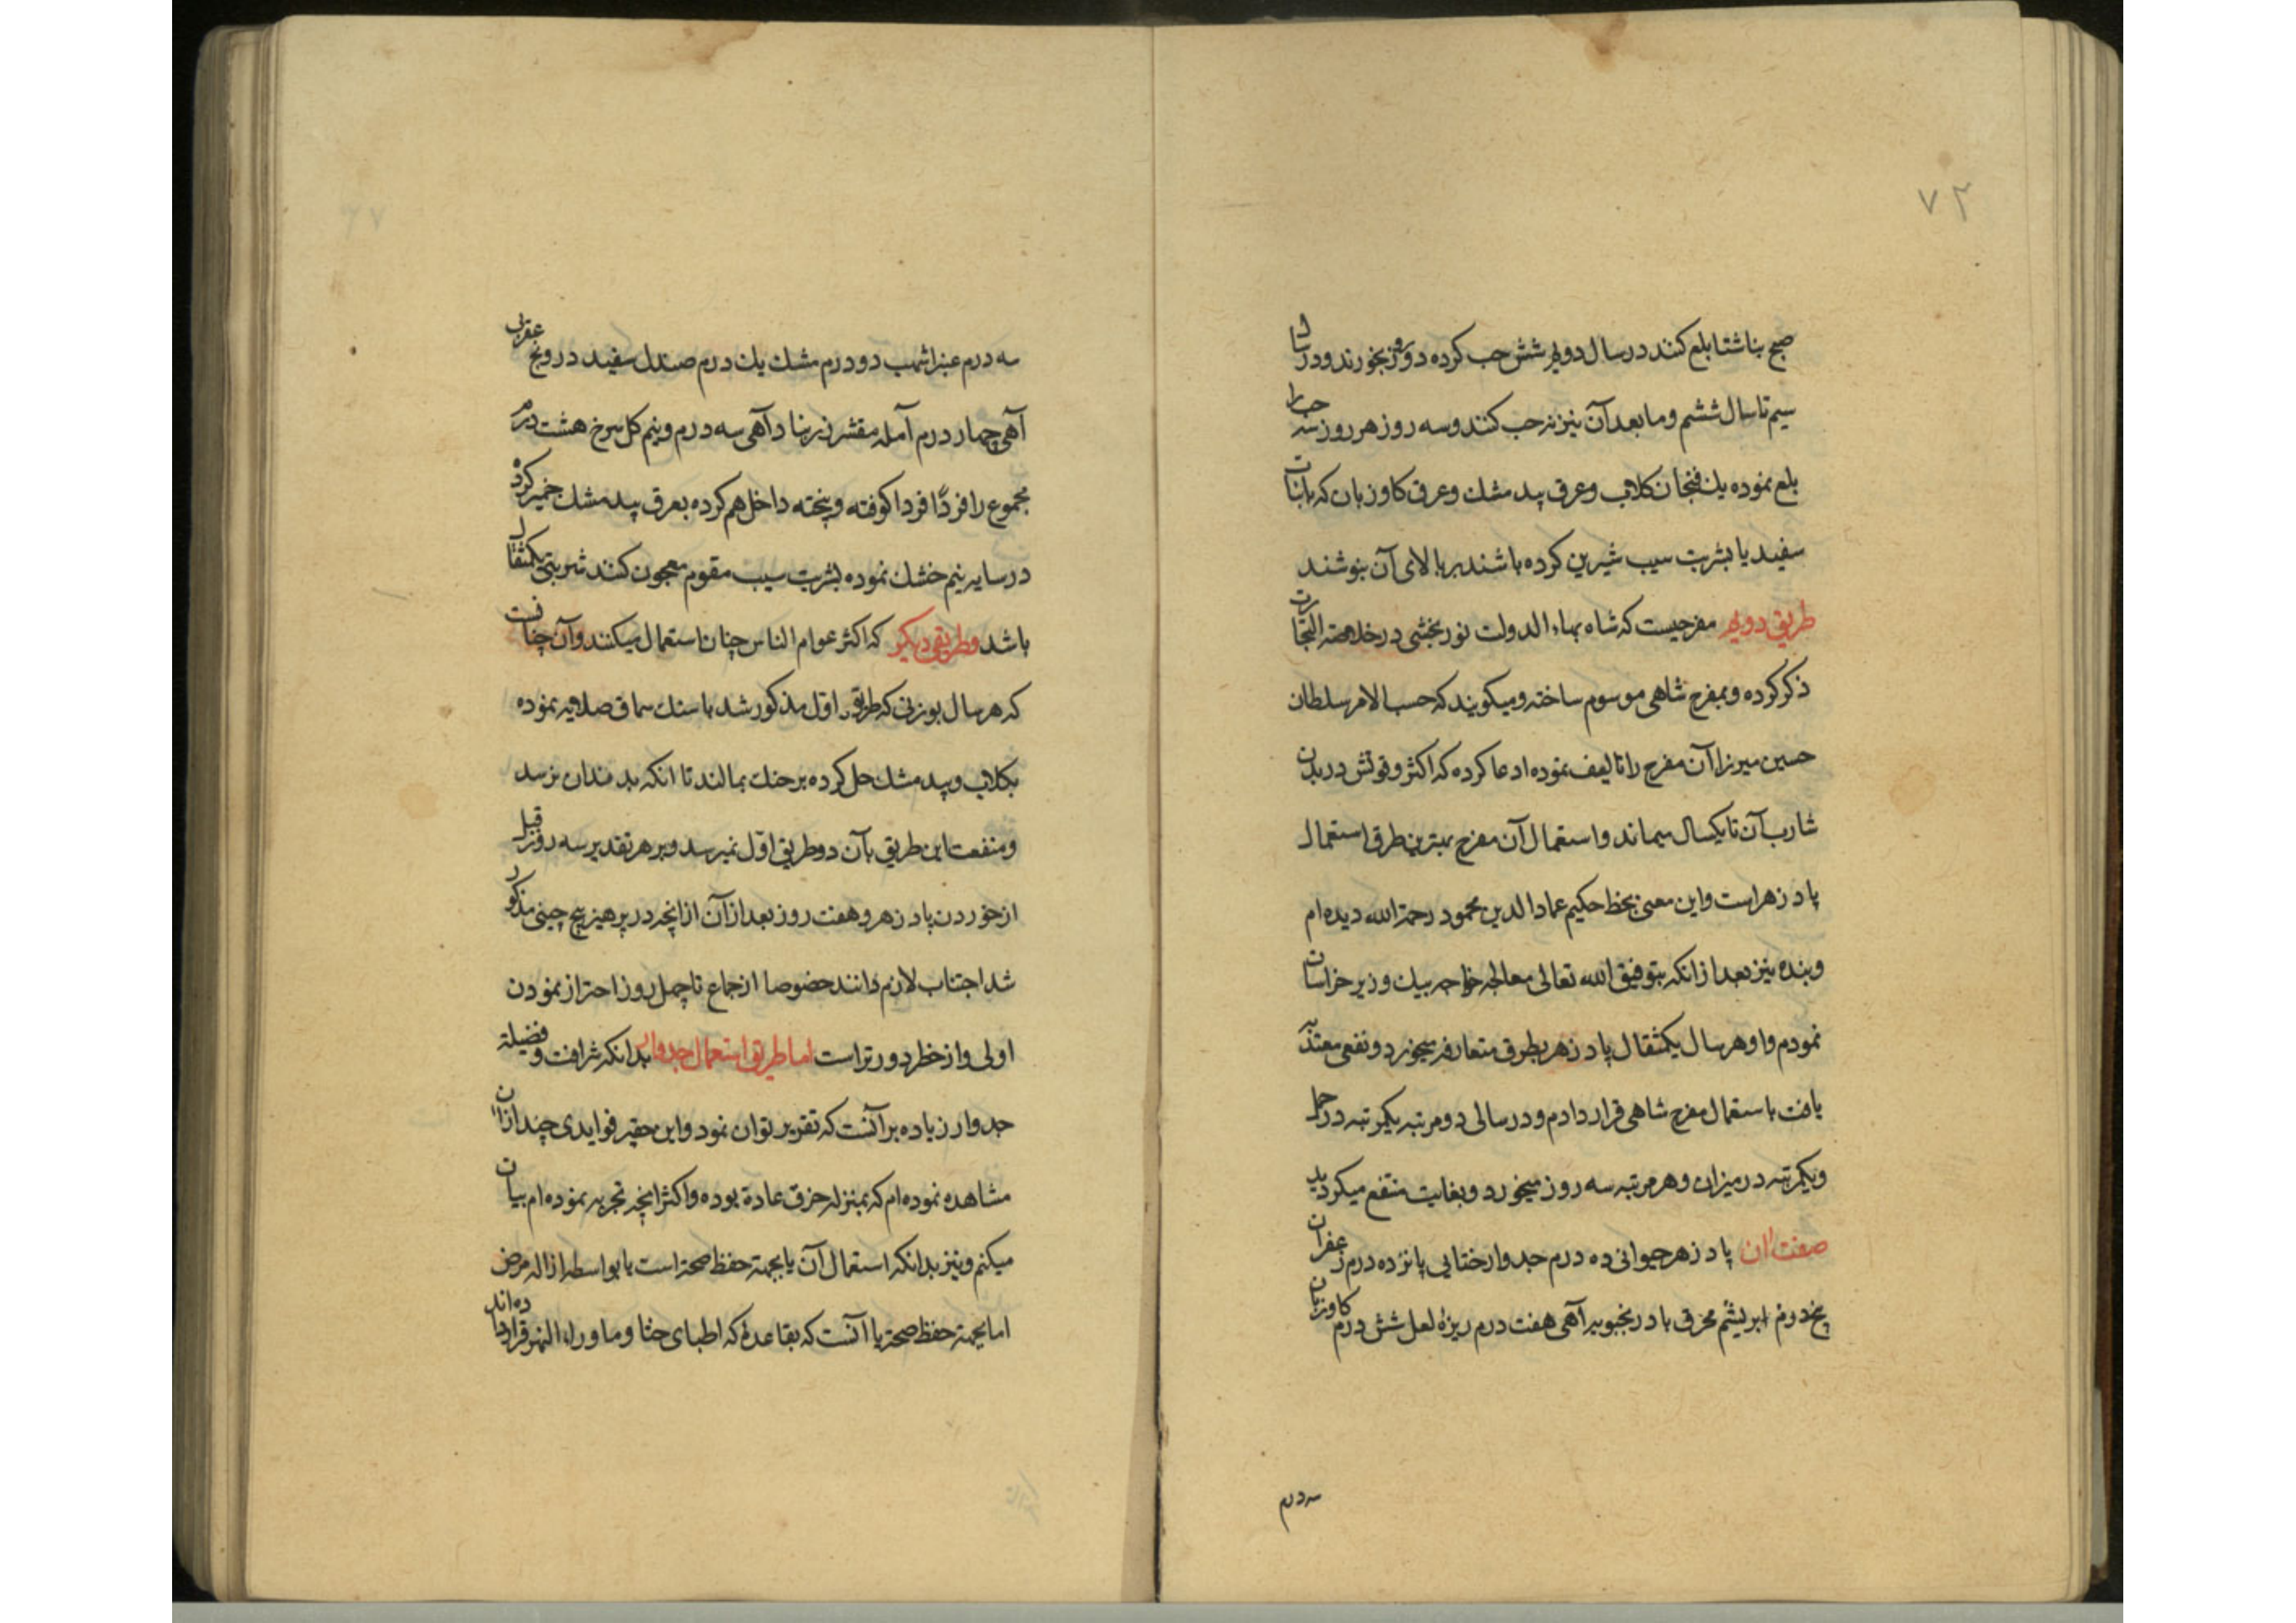 ۷۲
صبح بناشتا بلع کنند در سال دویم شش حب کرده دو روز بخورند و در سال
سیم تا سال ششم و ما بعد آن نیز نه حب کنند و سه روز هر روز سه حب را
بلع نموده یک فنجان کلاب و عرق بید مشک و عرق کاوزبان که بانبات
سفید یا بشربت سیب شیرین کرده باشند بر بالای آن بنوشند
طریق دویم مفرحیست که شاه بهاء الدولت نوربخشی در خلاصة التجارت
ذکر کرده و بمفرح شاهی موسوم ساخته و میکویند که حسب الامر سلطان
حسین میرزا آن مفرح را تالیف نموده ادعا کرده که اکثر وقوتش در بدن
شارب آن تا یکسال میماند و استعمال آن مفرح بهترین طرق استعمال
پادزهر است و این معنی بخط حکیم عماد الدین محمود رحمة الله دیده ام
و بنده نیز بعد از انکه بتوفیق الله تعالی معالجه خواجه بیک وزیر خراسان
نمودم و او هر سال یکمثقال پادزهر بطرق متعارفه میخورد و نفعی معتد به
یافت باستعمال مفرح شاهی قرار دادم و در سالی دو مرتبه یکمرتبه در حمل
و یکمرتبه در میزان و هر مرتبه سه روز میخورد و بغایت منتفع میکردید
صفت ان پادزهر حیوانی ده درم جدوار ختایی پانزده درم زعفران
پنجدرم ابریشم محرق بادرنجبویه آهی هفت درم ریزهٔ لعل شش درم کاوزبان
سه درم
سه درم عنبر اشهب دو درم مشک یک درم صندل سفید درونج عقربی
آهی چهار درم آمله مقشر زرنباد آهی سه درم و نیم کل سرخ هشت درم
مجموع را فردًا فردا کوفته و پخته داخل هم کرده بعرق بید مشک خمیر کرده
در سایه نیم خشک نموده بشربت سیب مقوم معجون کنند شربتی یکمثقال
باشد وطریقی دیکر که اکثر عوام الناس چنان استعمال میکنند و آن چنانست
که هر سال بوزنی که طریق اول مذکور شد باسنک سماق صلایه نموده
بکلاب و بید مشک حل کرده بر حنک بمالند تا انکه بدندان نرسد
و منفعت این طریق بآن دو طریق اول نمیرسد و بر هر تقدیر سه روز قبل
از خوردن پادزهر و هفت روز بعد از آن از انچه در پرهیز بیخ چینی مذکور
شد اجتناب لازم دانند خصوصا از جماع تا چهل روز احتراز نمودن
اولی و از خطر دورتر است اما طریق استعمال جدوار بدانکه شرافت و فضیلة
جدوار زیاده بر آنست که تقریر توان نمود و این حقیر فوایدی چند ازان
مشاهده نموده ام که بمنزله خرق عادة بوده و اکثر انچه تجربه نموده ام بیان
میکنم و نیز بدانکه استعمال آن یا بجهة حفظ صحة است یا بواسطه ازاله مرض
اما بجهة حفظ صحة یا آنست که بقاعدهٔ که اطبای ختا و ماوراء النهر قرار داده اند